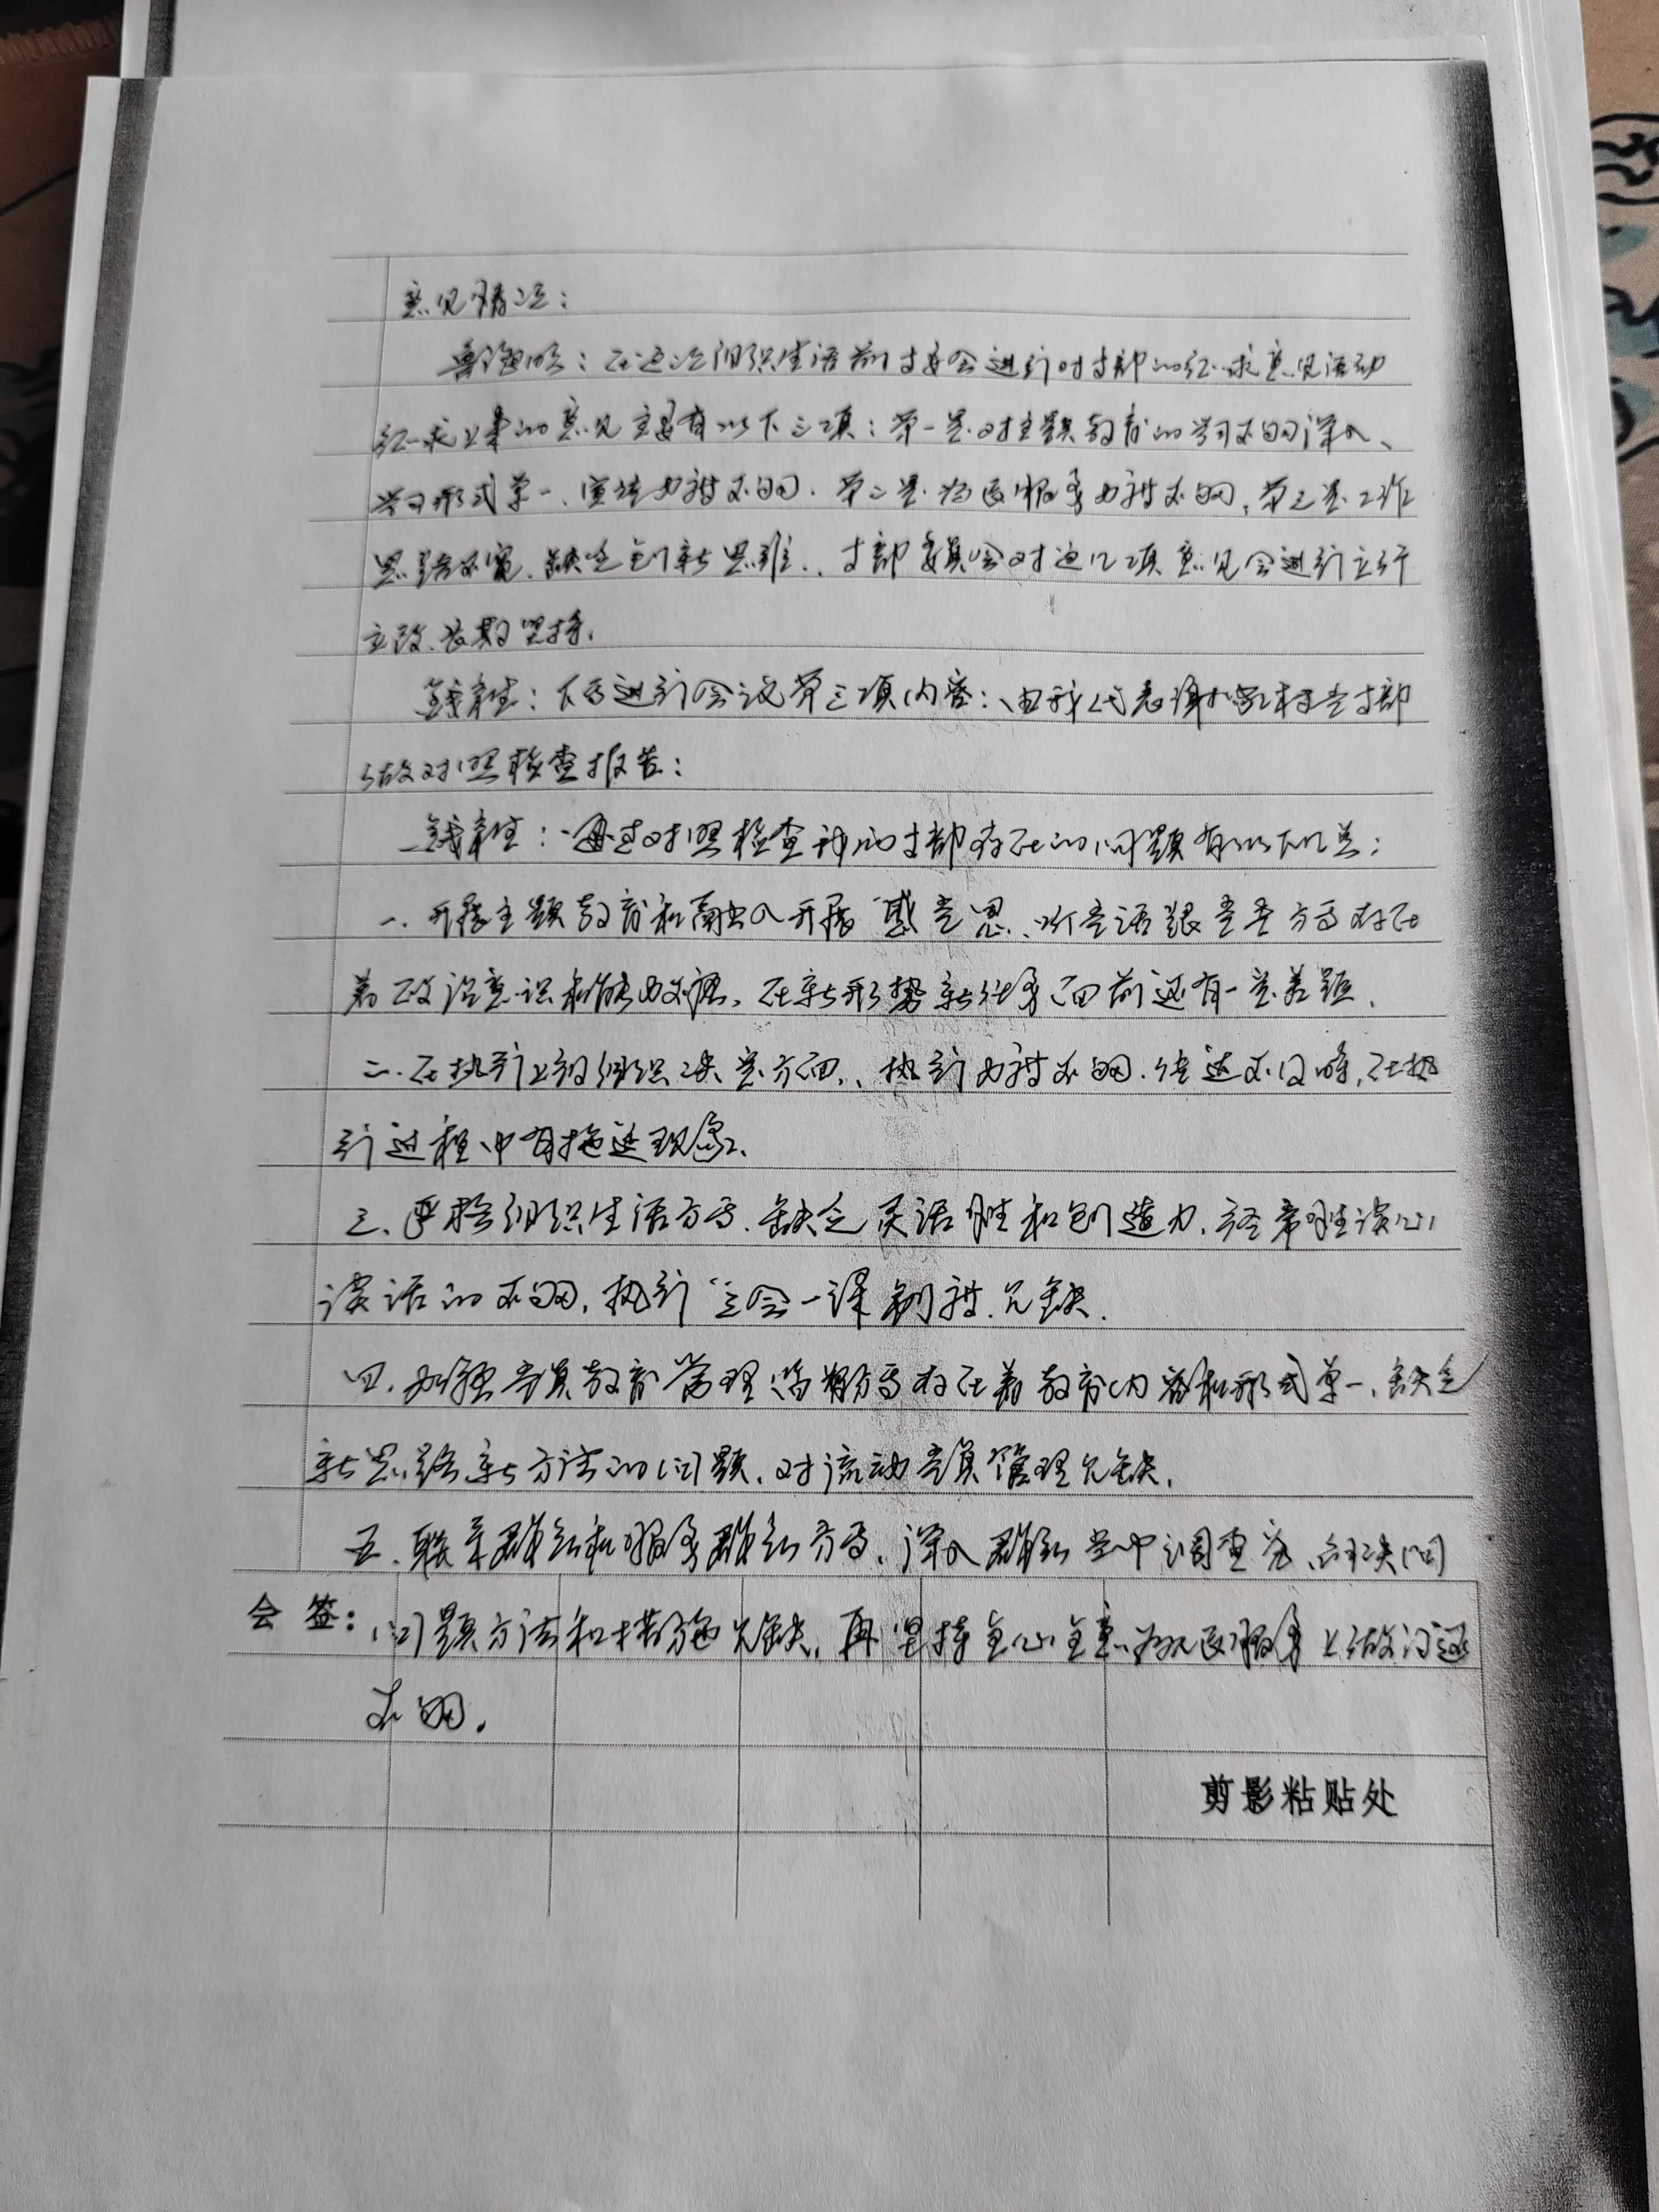 意见情况：
在这次组织生活前支委会进行对支部的征求意见活动
征求上来的意见主要有以下三项：第一是对主题教育的学习不够深入、
学习形式单一、宣传力度不够．第二是为民服务力度不够，第三是工作
思路不宽、缺乏创新思维．支部委员会对这几项意见会进行立行
立改、长期坚持．
下面进行会议第三项内容：由我代表村党支部
做对照检查报告：
通过对照检查我们支部存在的问题有以下几点：
一．开展主题教育和融入开展“感党恩、听党话、跟党走方面存在
着政治意识和能力不强．在新形势新任务面前还有一定差距．
二．在执行上级组织决定方面，执行力度不够．传达不及时，在执
行过程中有拖延现象．
三．严格组织生活方面．缺乏灵活性和创造力．经常性谈心
谈话的不够，执行“三会一课制度欠缺．
四．加强党员教育管理监督方面存在着教育内容和形式单一、缺乏
新思路新方法的问题．对流动党员管理欠缺．
五．联系群众和服务群众方面．深入群众当中调查研究、解决问
会 签： 问题方法和措施欠缺．再坚持全心全意为人民服务上做得还
不够．
剪影粘贴处